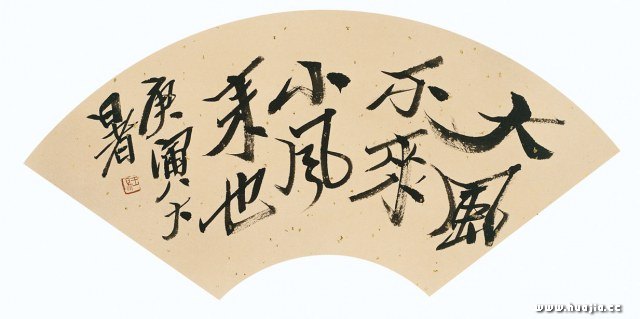 大風
不來
小風
来也
庚寅大
暑
www.huajia.cc